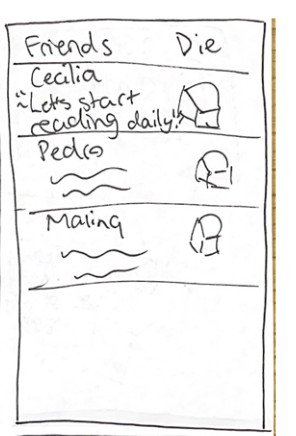 Friends Die
Cecilia
"Let's start
reading daily!"
Pedro
Malina